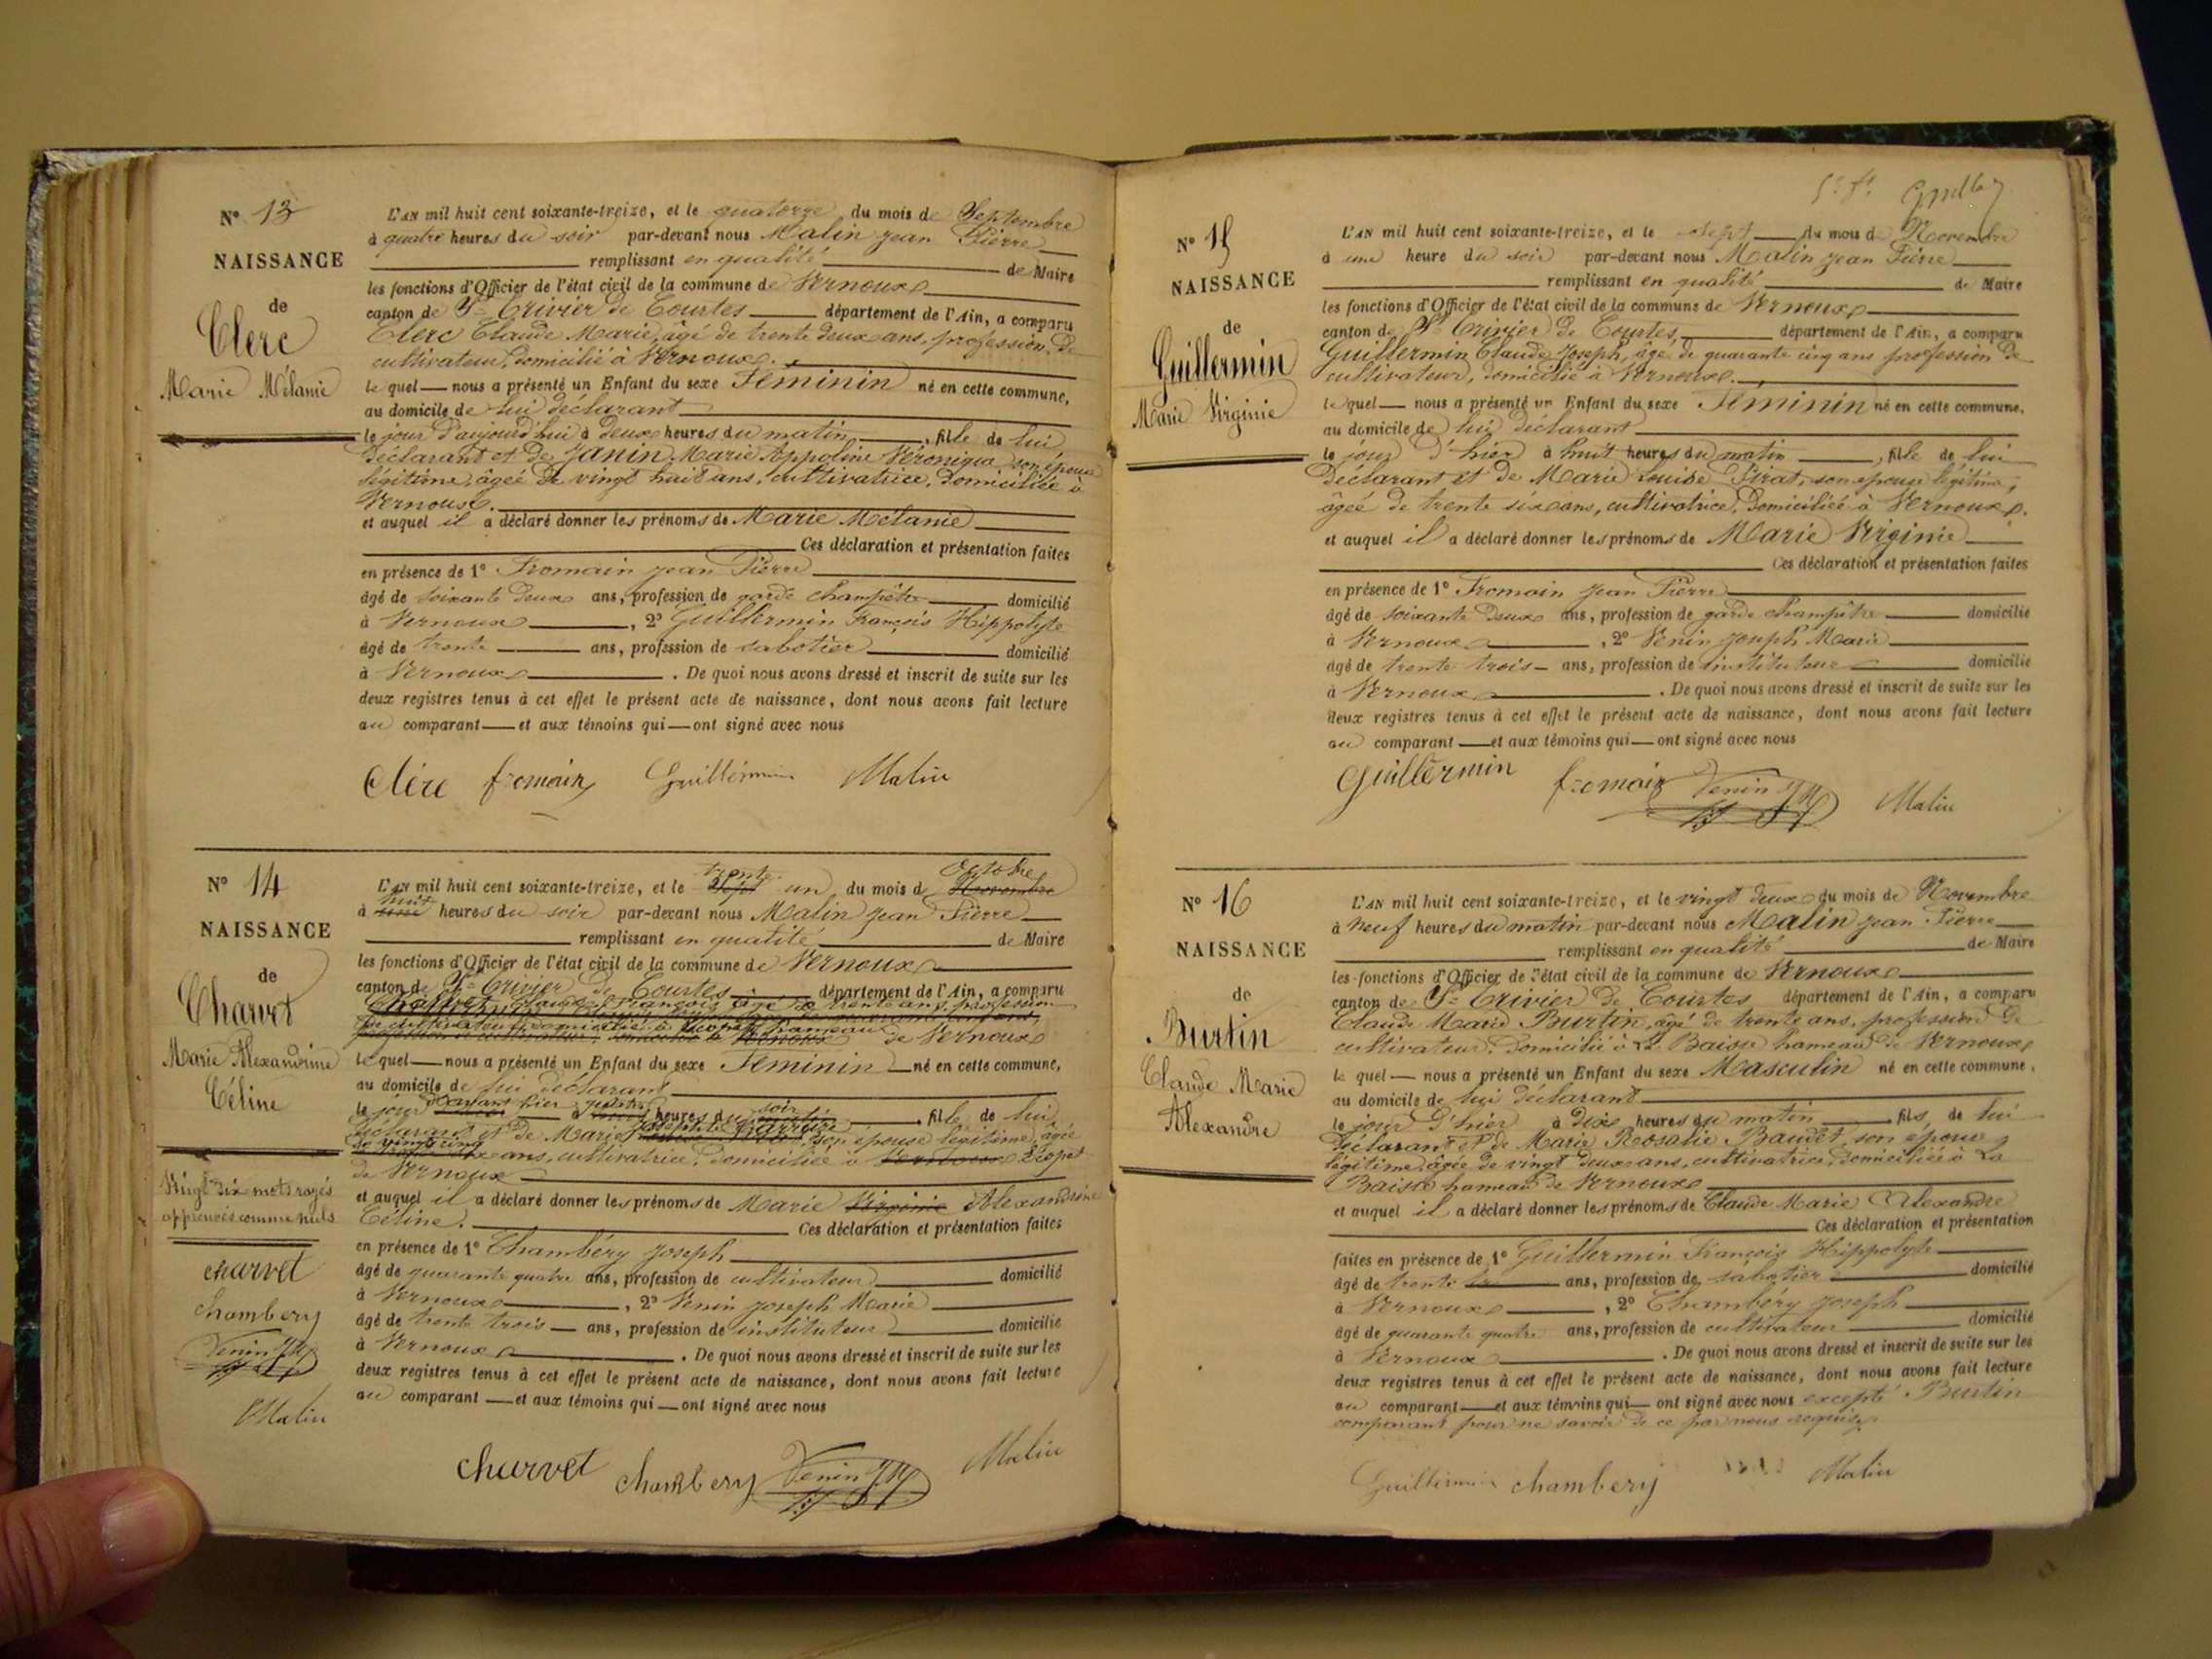 N° 13
NAISSANCE
de
Clerc
Marie Mélanie
L'AN mil huit cent soixante-treize, et le quatorze du mois de Septembre
à quatre heures du soir par-devant nous Malin Jean Pierre
remplissant en qualité de Maire
les fonctions d'Officier de l'état civil de la commune de Vernoux
canton de St Trivier de Courtes département de l'Ain, a comparu
Clerc Claude Marie, âgé de trente deux ans, profession de
cultivateur, domicilié à Vernoux.
le quel nous a présenté un Enfant du sexe Féminin né en cette commune,
au domicile de lui déclarant
le jour d'aujourd'hui à deux heures du matin, fille de lui
déclarant et de Janin Marie Appoline Véronique son épouse
légitime, âgée de vingt huit ans, cultivatrice, domiciliée à
Vernoux.
et auquel il a déclaré donner les prénoms de Marie Mélanie
Ces déclaration et présentation faites
en présence de 1° Fromain Jean Pierre
âgé de soixante deux ans, profession de garde champêtre domicilié
à Vernoux, 2° Guillermin François Hippolyte
âgé de trente ans, profession de sabotier domicilié
à Vernoux. De quoi nous avons dressé et inscrit de suite sur les
deux registres tenus à cet effet le présent acte de naissance, dont nous avons fait lecture
au comparant et aux témoins qui ont signé avec nous
Clerc fromain Guillermin Malin
N° 14
NAISSANCE
de
Charvet
Marie Alexandrine
Céline
Vingt six mots rayés
approuvés comme nuls
charvet
chambery
Venin JM
Malin
trente Octobre
L'AN mil huit cent soixante-treize, et le sept un du mois de Novembre
huit
à une heures du soir par-devant nous Malin Jean Pierre
remplissant en qualité de Maire
les fonctions d'Officier de l'état civil de la commune de Vernoux
canton de St Trivier de Courtes département de l'Ain, a comparu
Charvet Claude François âgé de trente ans, profession
de cultivateur, domicilié à Écopet hameau de Vernoux
le quel nous a présenté un Enfant du sexe Féminin né en cette commune,
au domicile de lui déclarant
le jour d'avant hier à quatre heures du soir, fille de lui
déclarant et de Marie Josephte son épouse légitime, âgée
de vingt cinq ans, cultivatrice, domiciliée à Vernoux Écopet
de Vernoux
et auquel il a déclaré donner les prénoms de Marie Virginie Alexandrine
Céline. Ces déclaration et présentation faites
en présence de 1° Chambéry Joseph
âgé de quarante quatre ans, profession de cultivateur domicilié
à Vernoux, 2° Venin Joseph Marie
âgé de trente trois ans, profession de instituteur domicilié
à Vernoux. De quoi nous avons dressé et inscrit de suite sur les
deux registres tenus à cet effet le présent acte de naissance, dont nous avons fait lecture
au comparant et aux témoins qui ont signé avec nous
charvet chambery Venin JM Malin
N° 15
NAISSANCE
de
Guillermin
Marie Virginie
L'AN mil huit cent soixante-treize, et le sept du mois de Novembre
à une heure du soir par-devant nous Malin Jean Pierre
remplissant en qualité de Maire
les fonctions d'Officier de l'état civil de la commune de Vernoux
canton de St Trivier de Courtes, département de l'Ain, a comparu
Guillermin Claude Joseph, âgé de quarante cinq ans profession de
cultivateur, domicilié à Vernoux.
le quel nous a présenté un Enfant du sexe Féminin né en cette commune,
au domicile de lui déclarant
le jour d'hier à huit heures du matin, fille de lui
déclarant et de Marie Louise Pirat, son épouse légitime,
âgée de trente six ans, cultivatrice, domiciliée à Vernoux.
et auquel il a déclaré donner les prénoms de Marie Virginie
Ces déclaration et présentation faites
en présence de 1° Fromain Jean Pierre
âgé de soixante deux ans, profession de garde champêtre domicilié
à Vernoux, 2° Venin Joseph Marie
âgé de trente trois ans, profession de instituteur domicilié
à Vernoux. De quoi nous avons dressé et inscrit de suite sur les
deux registres tenus à cet effet le présent acte de naissance, dont nous avons fait lecture
au comparant et aux témoins qui ont signé avec nous
Guillermin fromain Venin JM Malin
N° 16
NAISSANCE
de
Burtin
Claude Marie
Alexandre
L'AN mil huit cent soixante-treize, et le vingt deux du mois de Novembre
à neuf heures du matin par-devant nous Malin Jean Pierre
remplissant en qualité de Maire
les fonctions d'Officier de l'état civil de la commune de Vernoux
canton de St Trivier de Courtes département de l'Ain, a comparu
Claude Marie Burtin, âgé de trente ans, profession de
cultivateur, domicilié à La Baisse hameau de Vernoux
le quel nous a présenté un Enfant du sexe Masculin né en cette commune,
au domicile de lui déclarant
le jour d'hier à dix heures du matin, fils de lui
déclarant et de Marie Rosalie Baudet, son épouse
légitime, âgée de vingt deux ans, cultivatrice, domiciliée à La
Baisse hameau de Vernoux
et auquel il a déclaré donner les prénoms de Claude Marie Alexandre
Ces déclaration et présentation
faites en présence de 1° Guillermin François Hippolyte
âgé de trente ans, profession de sabotier domicilié
à Vernoux, 2° Chambéry Joseph
âgé de quarante quatre ans, profession de cultivateur domicilié
à Vernoux. De quoi nous avons dressé et inscrit de suite sur les
deux registres tenus à cet effet le présent acte de naissance, dont nous avons fait lecture
au comparant et aux témoins qui ont signé avec nous excepté Burtin
comparant pour ne savoir de ce par nous requis
Guillermin chambery Malin